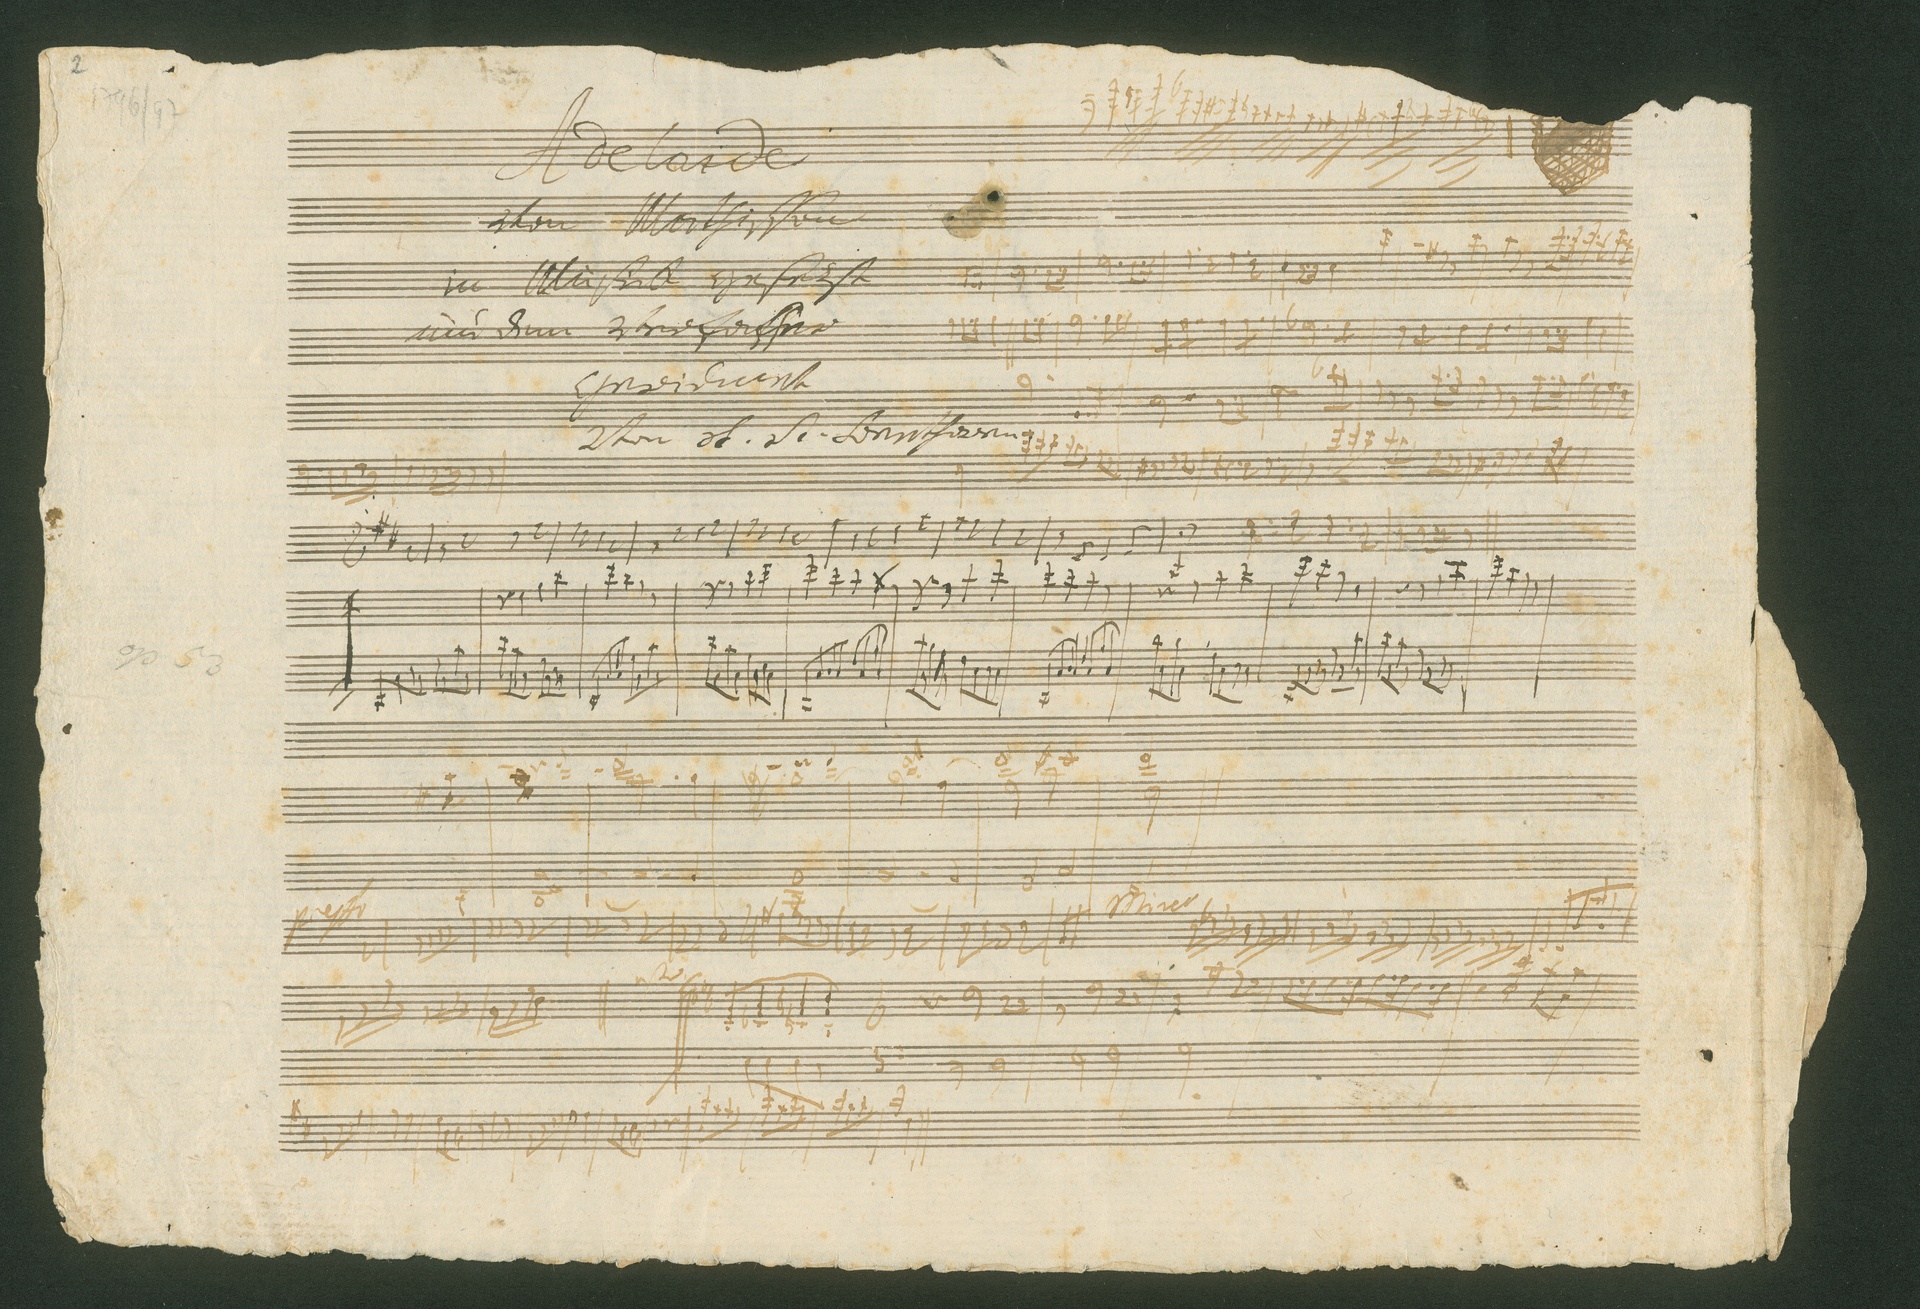 2
1796/97
Adelaide
von Matthisson
in Musick gesetzt
und dem Verfasser
gewidmet
von L. v. Beethoven
op 53
presto
Minor